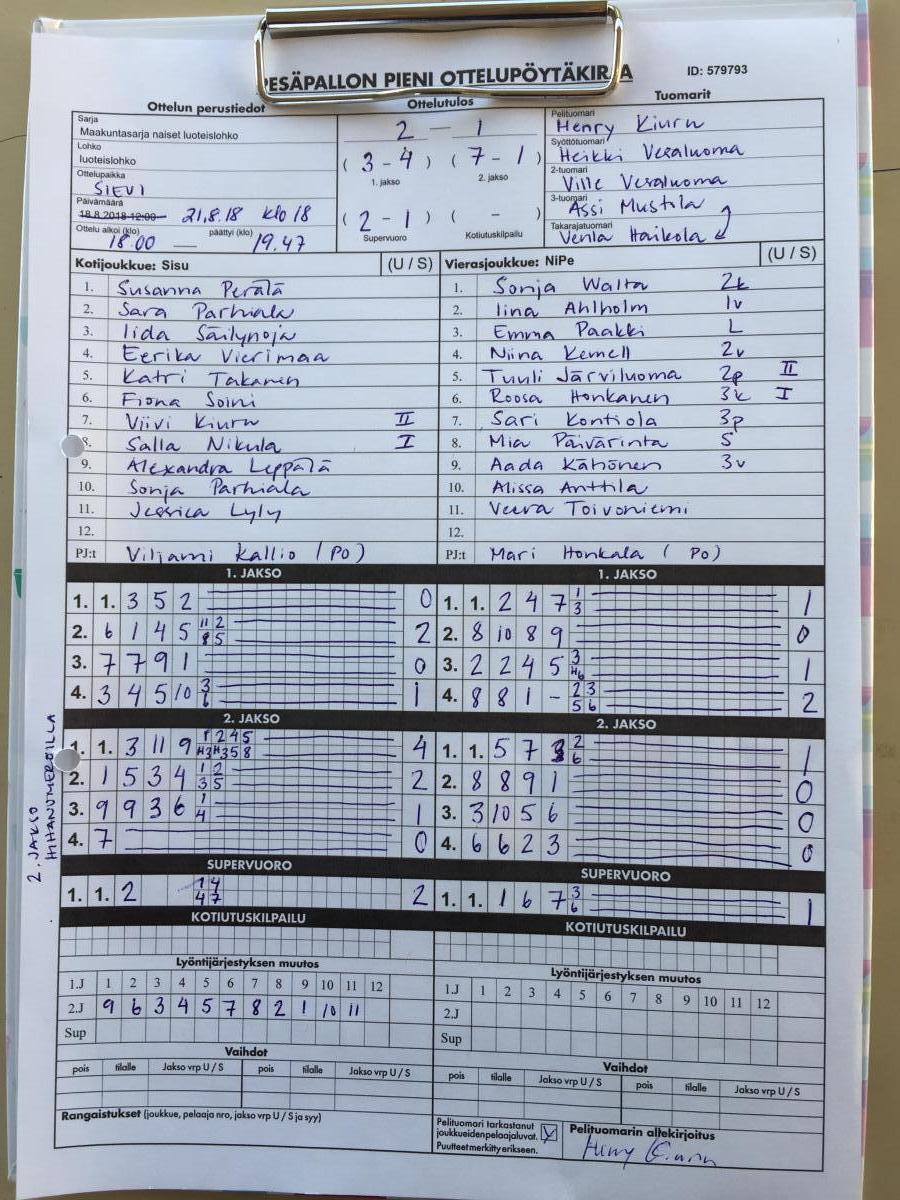 PESÄPALLON PIENI OTTELUPÖYTÄKIRJA
ID: 579793
Ottelun perustiedot
Ottelutulos
Tuomarit
Sarja
Maakuntasarja naiset luoteislohko
Lohko
luoteislohko
Ottelupaikka
SIEVI
Päivämäärä
18.8.2018 12:00 21.8.18 klo 18
Ottelu alkoi (klo) päättyi (klo)
18.00 — 19.47
2 — 1
( 3 - 4 ) ( 7 - 1 )
1. jakso 2. jakso
( 2 - 1 ) ( - )
Supervuoro Kotiutuskilpailu
Pelituomari
Henry Kiuru
Syöttötuomari
Heikki Vesaluoma
2-tuomari
Ville Vesaluoma
3-tuomari
Assi Mustila
Takarajatuomari
Venla Haikola
Kotijoukkue: Sisu (U / S)
1. Susanna Perälä
2. Sara Parhiala
3. Iida Säilynoja
4. Eerika Vierimaa
5. Katri Takanen
6. Fiona Soini
7. Viivi Kiuru II
8. Salla Nikula I
9. Alexandra Leppälä
10. Sonja Parhiala
11. Jessica Lyly
12.
PJ:t Viljami Kallio (PO)
Vierasjoukkue: NiPe (U / S)
1. Sonja Walta 2k
2. Iina Ahlholm 1v
3. Emma Paakki L
4. Niina Kemell 2v
5. Tuuli Järviluoma 2p II
6. Roosa Honkanen 3k I
7. Sari Kontiola 3p
8. Mia Päivärinta S
9. Aada Kähönen 3v
10. Alissa Anttila
11. Veera Toivoniemi
12.
PJ:t Mari Honkala (PO)
1. JAKSO
1. 1. 3 5 2 0
2. 6 1 4 5 2
3. 7 7 9 1 0
4. 3 4 5 10 3 6 1
1. JAKSO
1. 1. 2 4 7 1 3 1
2. 8 10 8 9 0
3. 2 2 4 5 3 H6 1
4. 8 8 1 - 2 3 5 6 2
2. JAKSO HIHANUMEROILLA
2. JAKSO
1. 1. 3 11 9 4
2. 1 5 3 4 1 2 3 5 2
3. 9 9 3 6 1 4 1
4. 7 0
2. JAKSO
1. 1. 5 7 2 6 1
2. 8 8 9 1 0
3. 3 10 5 6 0
4. 6 6 2 3 0
SUPERVUORO
1. 1. 2 1 4 4 7 2
SUPERVUORO
1. 1. 1 6 7 3 6 1
KOTIUTUSKILPAILU
KOTIUTUSKILPAILU
Lyöntijärjestyksen muutos
1.J 1 2 3 4 5 6 7 8 9 10 11 12
2.J 9 6 3 4 5 7 8 2 1 10 11
Sup
Lyöntijärjestyksen muutos
1.J 1 2 3 4 5 6 7 8 9 10 11 12
2.J
Sup
Vaihdot
pois tilalle Jakso vrp U / S pois tilalle Jakso vrp U / S
Vaihdot
pois tilalle Jakso vrp U / S pois tilalle Jakso vrp U / S
Rangaistukset (joukkue, pelaaja nro, jakso vrp U / S ja syy)
Pelituomari tarkastanut
joukkueiden pelaajaluvat.
Puutteet merkitty erikseen.
Pelituomarin allekirjoitus
Henry Kiuru